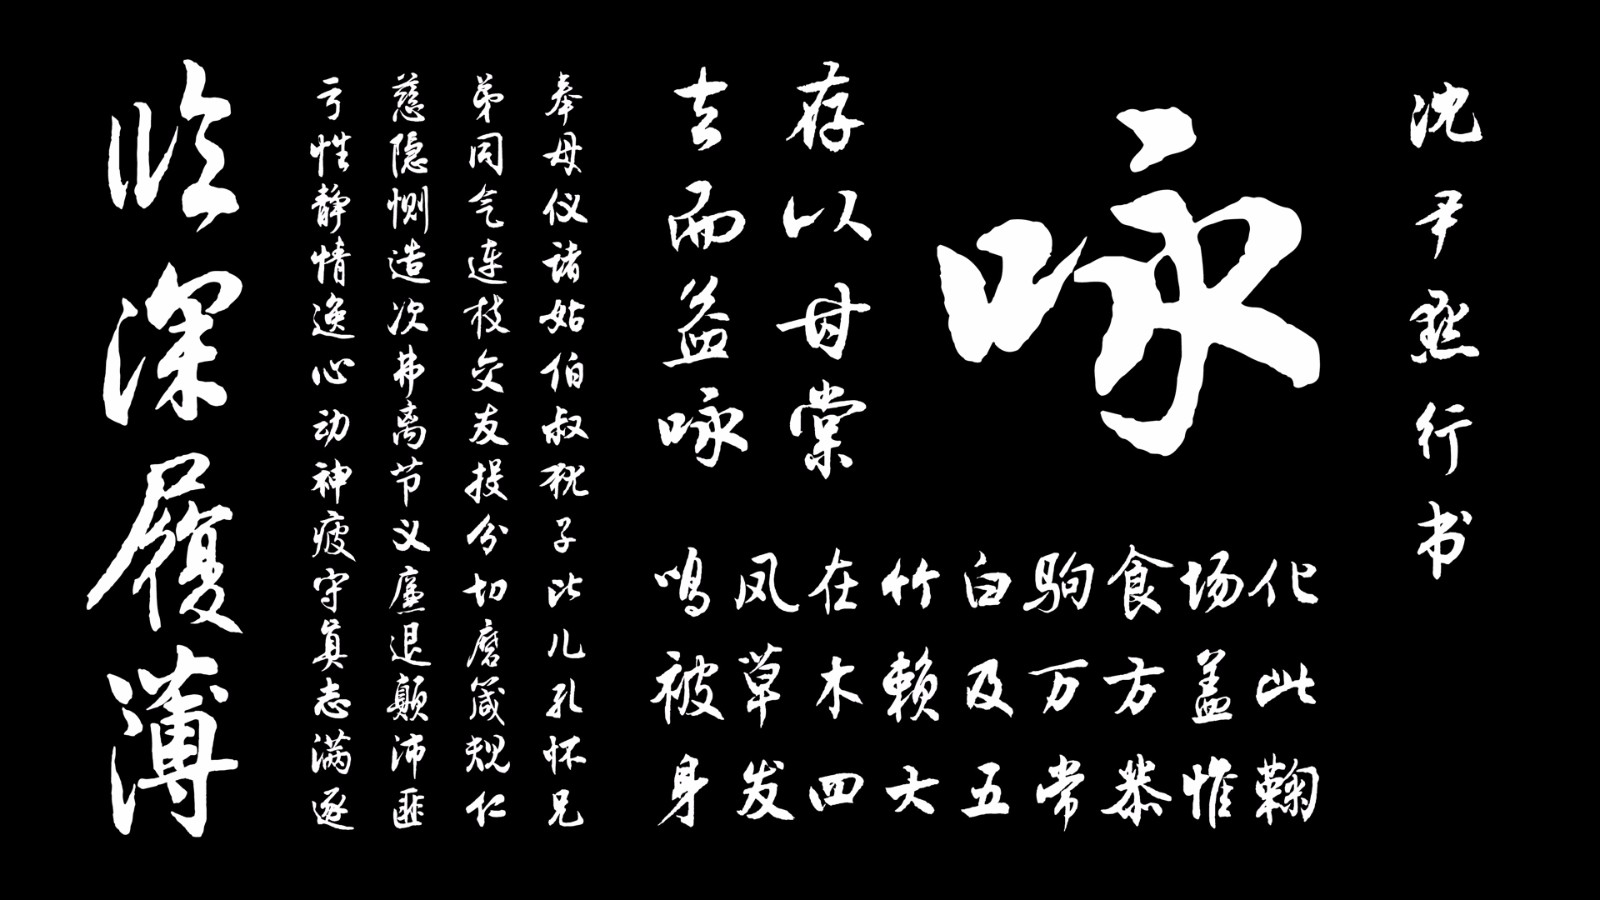 沈尹默行书
咏
存以甘棠
去而益咏
鸣凤在竹白驹食场化
被草木赖及万方盖此
身发四大五常恭惟鞠
奉母仪诸姑伯叔犹子比儿孔怀兄
弟同气连枝交友投分切磨箴规仁
慈隐恻造次弗离节义廉退颠沛匪
亏性静情逸心动神疲守真志满逐
临深履薄